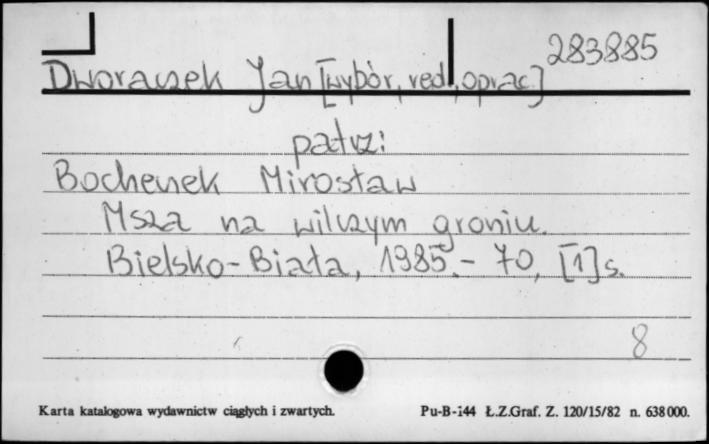 283885
Dworaczek Jan [wybór, red., oprac.]
patrz:
Bochenek Mirosław
Msza na wilczym groniu.
Bielsko-Biała, 1985.- 70, [1] s.
8
Karta katalogowa wydawnictw ciągłych i zwartych. Pu-B-144 Ł.Z.Graf. Z. 120/15/82 n. 638000.